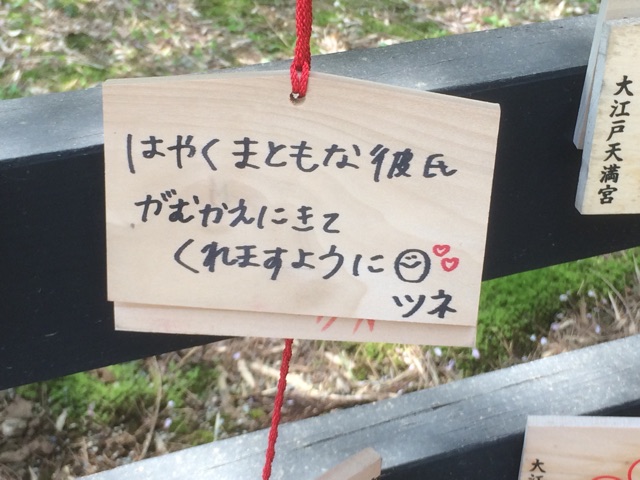 はやくまともな彼氏
がむかえにきて
くれますように
ツネ
大江戸天満宮
大江